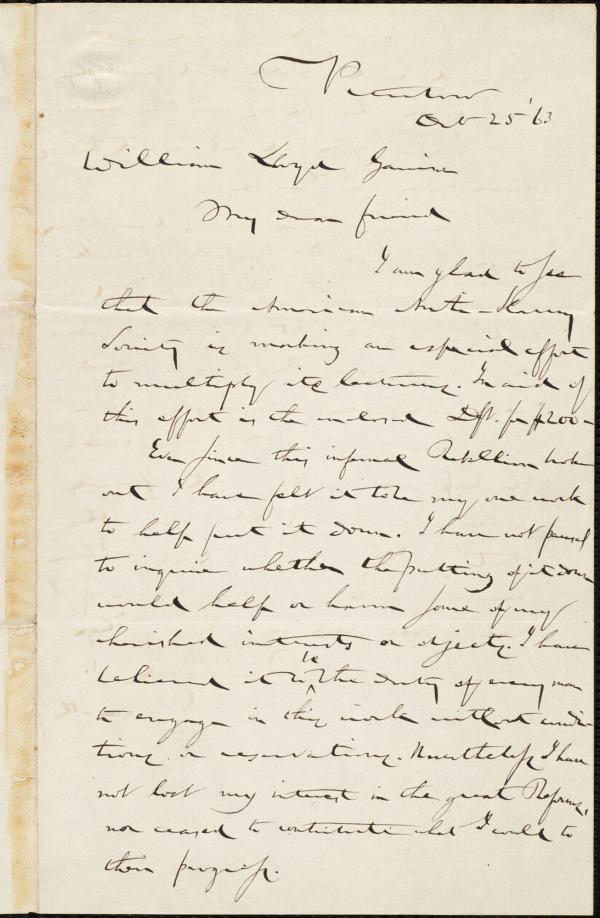 Peterboro
Oct 25 '63
William Lloyd Garrison
My dear friend
I am glad to see
that the American Anti-Slavery
Society is making an especial effort
to multiply its lectures. In aid of
this effort is the enclosed Dft. for $200-
Ever since this infernal Rebellion broke
out I have felt it to be my one work
to help put it down. I have not paused
to inquire whether the putting of it down
would help or harm some of my
cherished interests or objects. I have
believed it to be the duty of every man
to engage in this work without condi-
tions or reservations. Nevertheless, I have
not lost my interest in the great Reforms,
nor ceased to contribute what I could to
their progress.